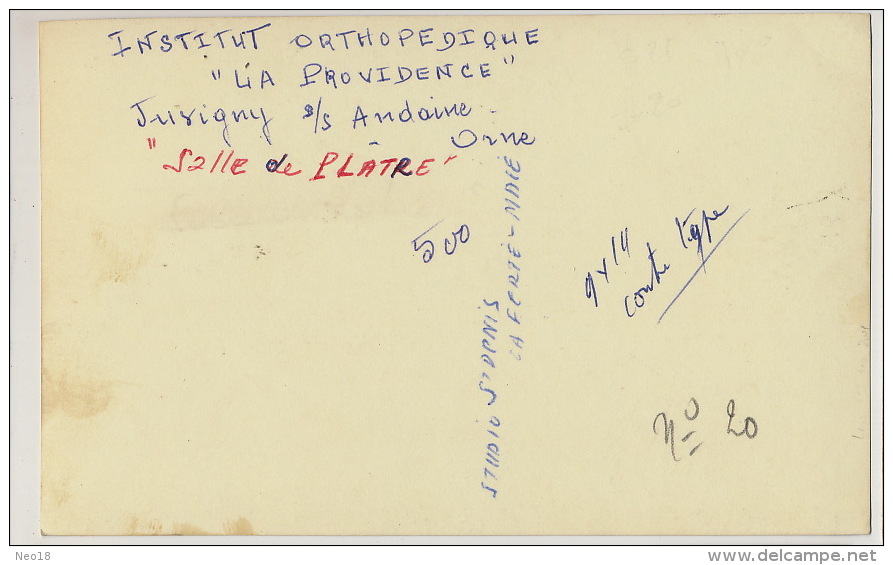 INSTITUT ORTHOPEDIQUE
"LA PROVIDENCE"
Juvigny s/s Andaine
- Orne
"Salle de PLATRE"
500
STUDIO St DENIS
LA FERTÉ-MACÉ
9x14
contre type
No 20
Neo18
www.delcampe.net